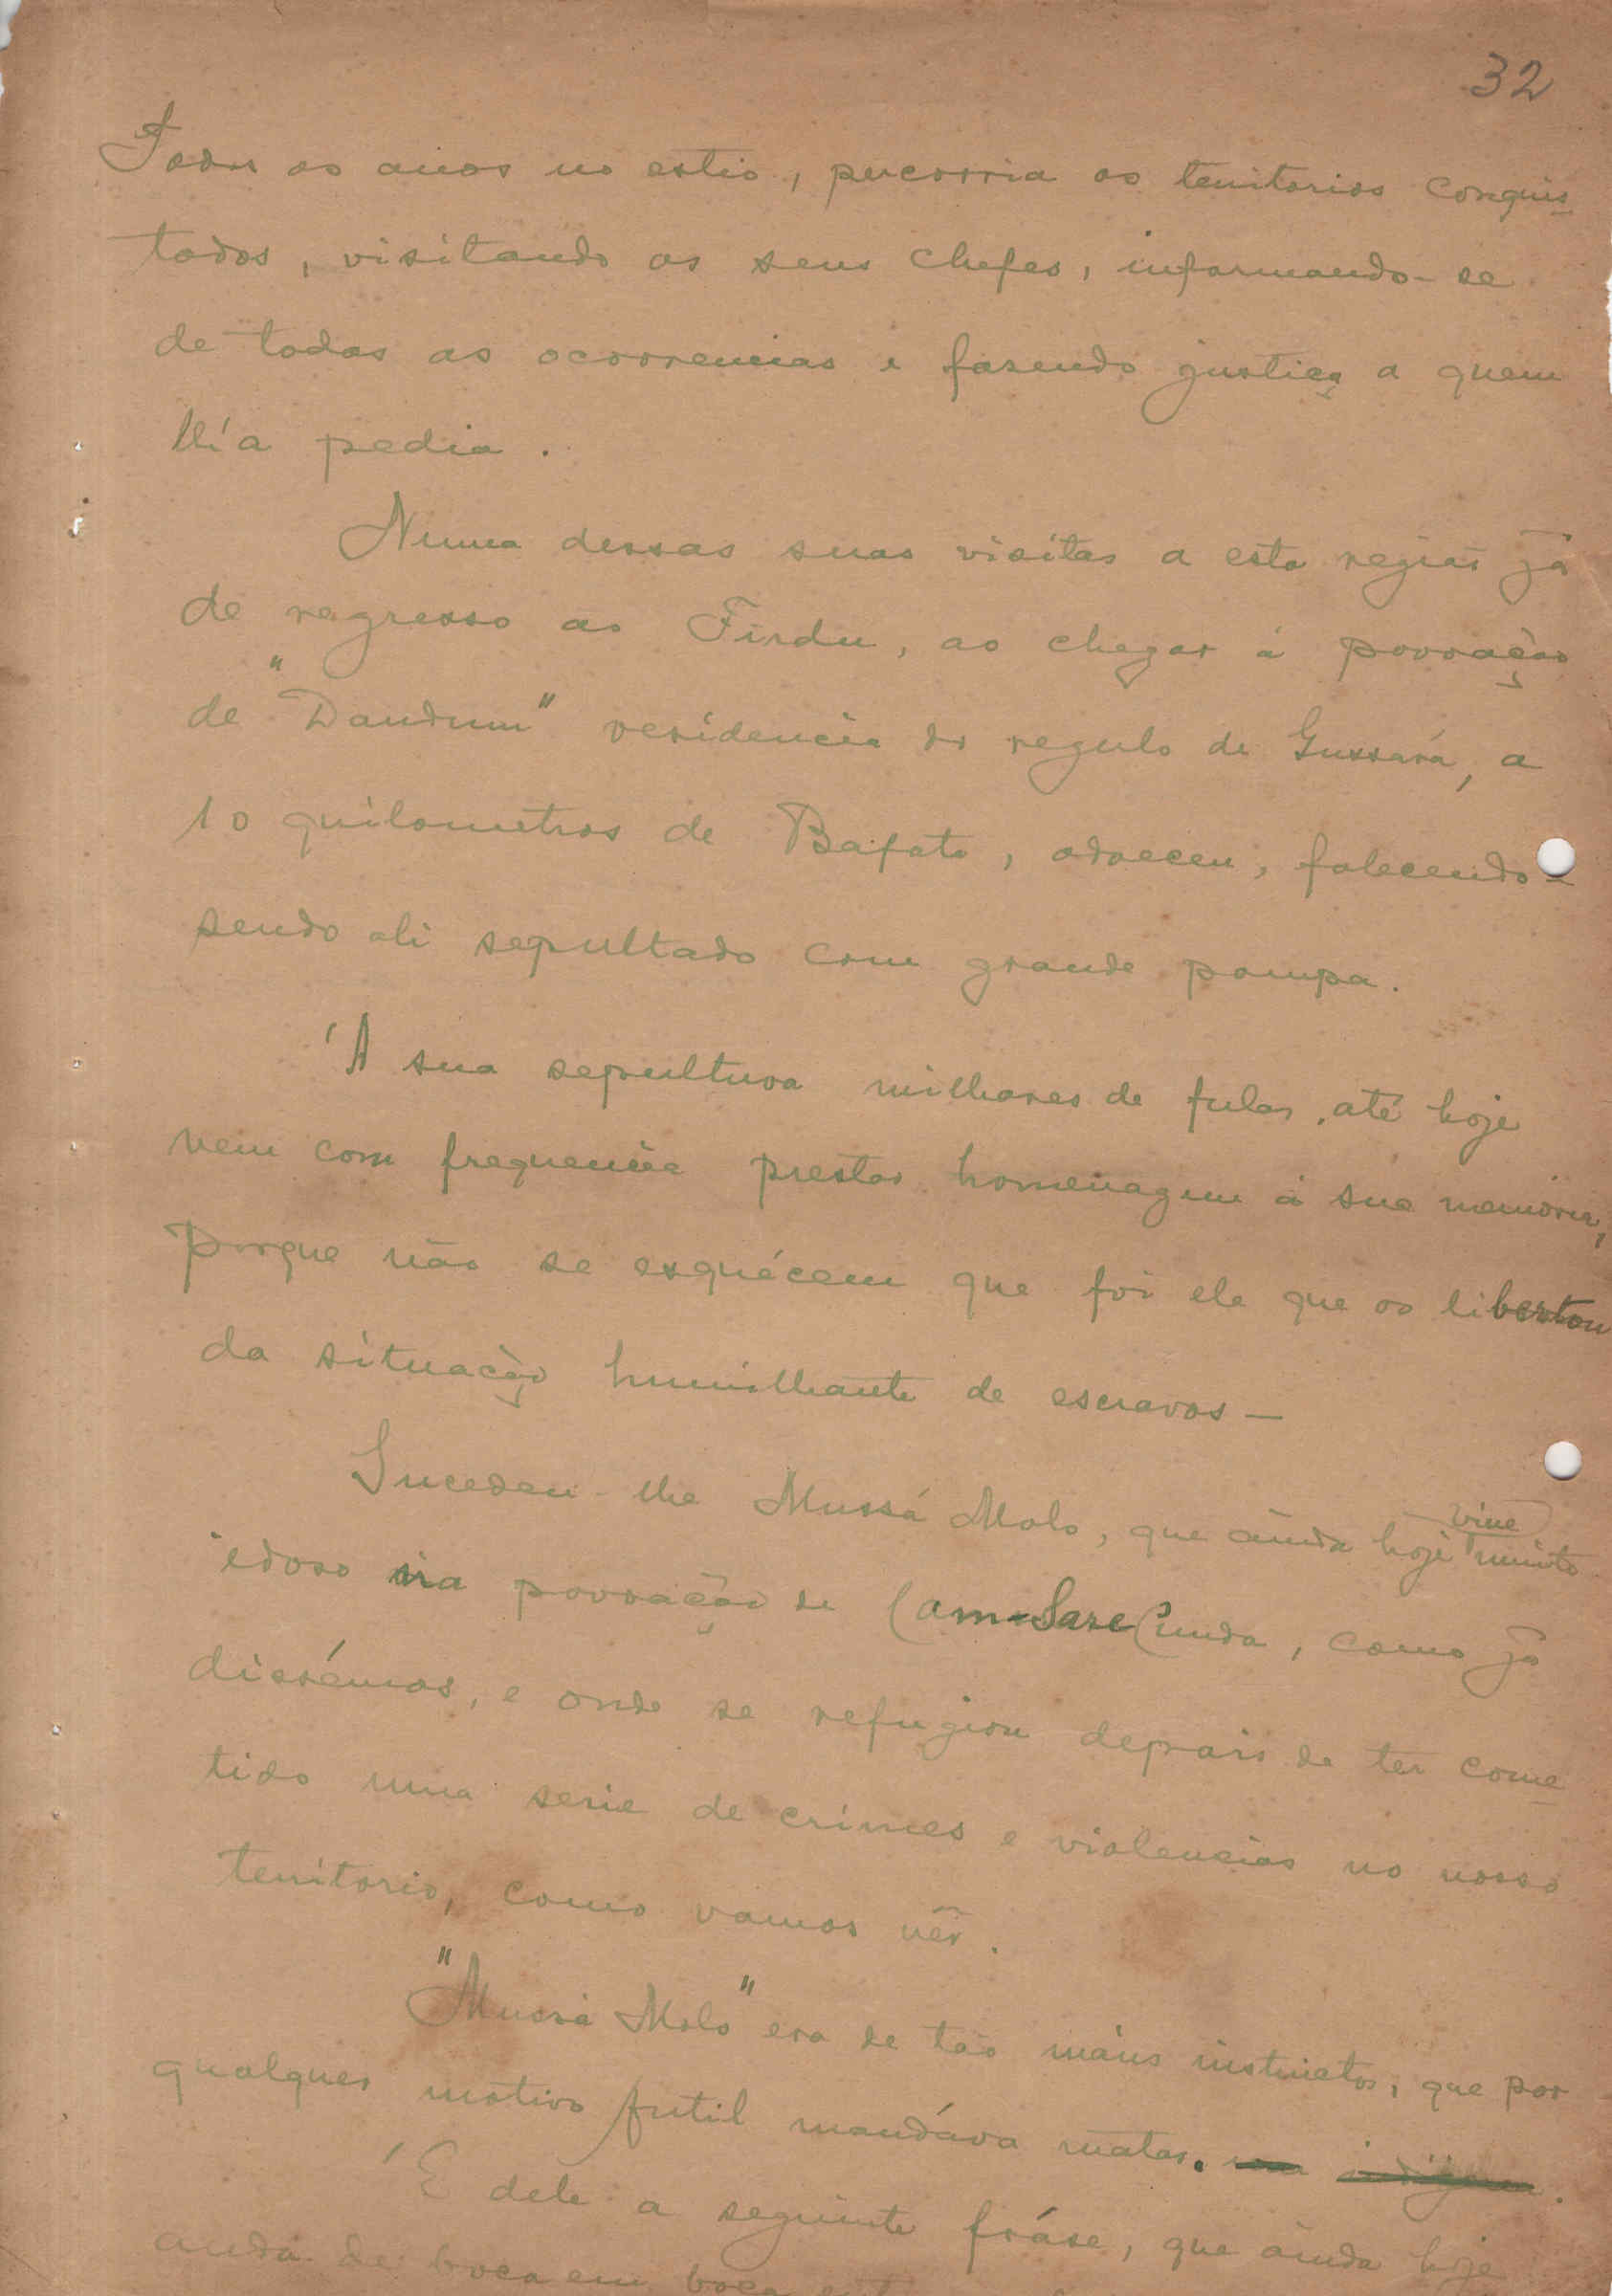 32
Todos os anos no estio, percorria os territorios conquis
tados, visitando os seus chefes, informando-se
de todas as ocorrencias e fazendo justiça a quem
lh'a pedia.
Numa dessas suas visitas a esta região já
de regresso ao Firdu, ao chegar á povoação
de "Dandum" residencia do regulo de Gussará, a
10 quilometros de Bafatá, adoeceu, falecendo-
sendo ali sepultado com grande pompa.
'A sua sepultura milhares de fulas, até hoje
vem com frequencia prestar homenagem á sua memória,
porque não se esquécem que foi ele que os libertou
da situação humilhante de escravos-
Sucedeu-lhe Mussá Molo, que ainda hoje vive muito
idoso na povoação de Cam-Sare Cunda, como já
dissémos, e onde se refugiou depois de ter come
tido uma serie de crimes e violencias no nosso
territorio, como vamos vêr.
"Mussá Molo" era de tão máus instinctos, que por
qualquer motivo futil mandáva matar. um indigena.
'E dele a seguinte fráse, que ainda hoje
anda de boca em boca